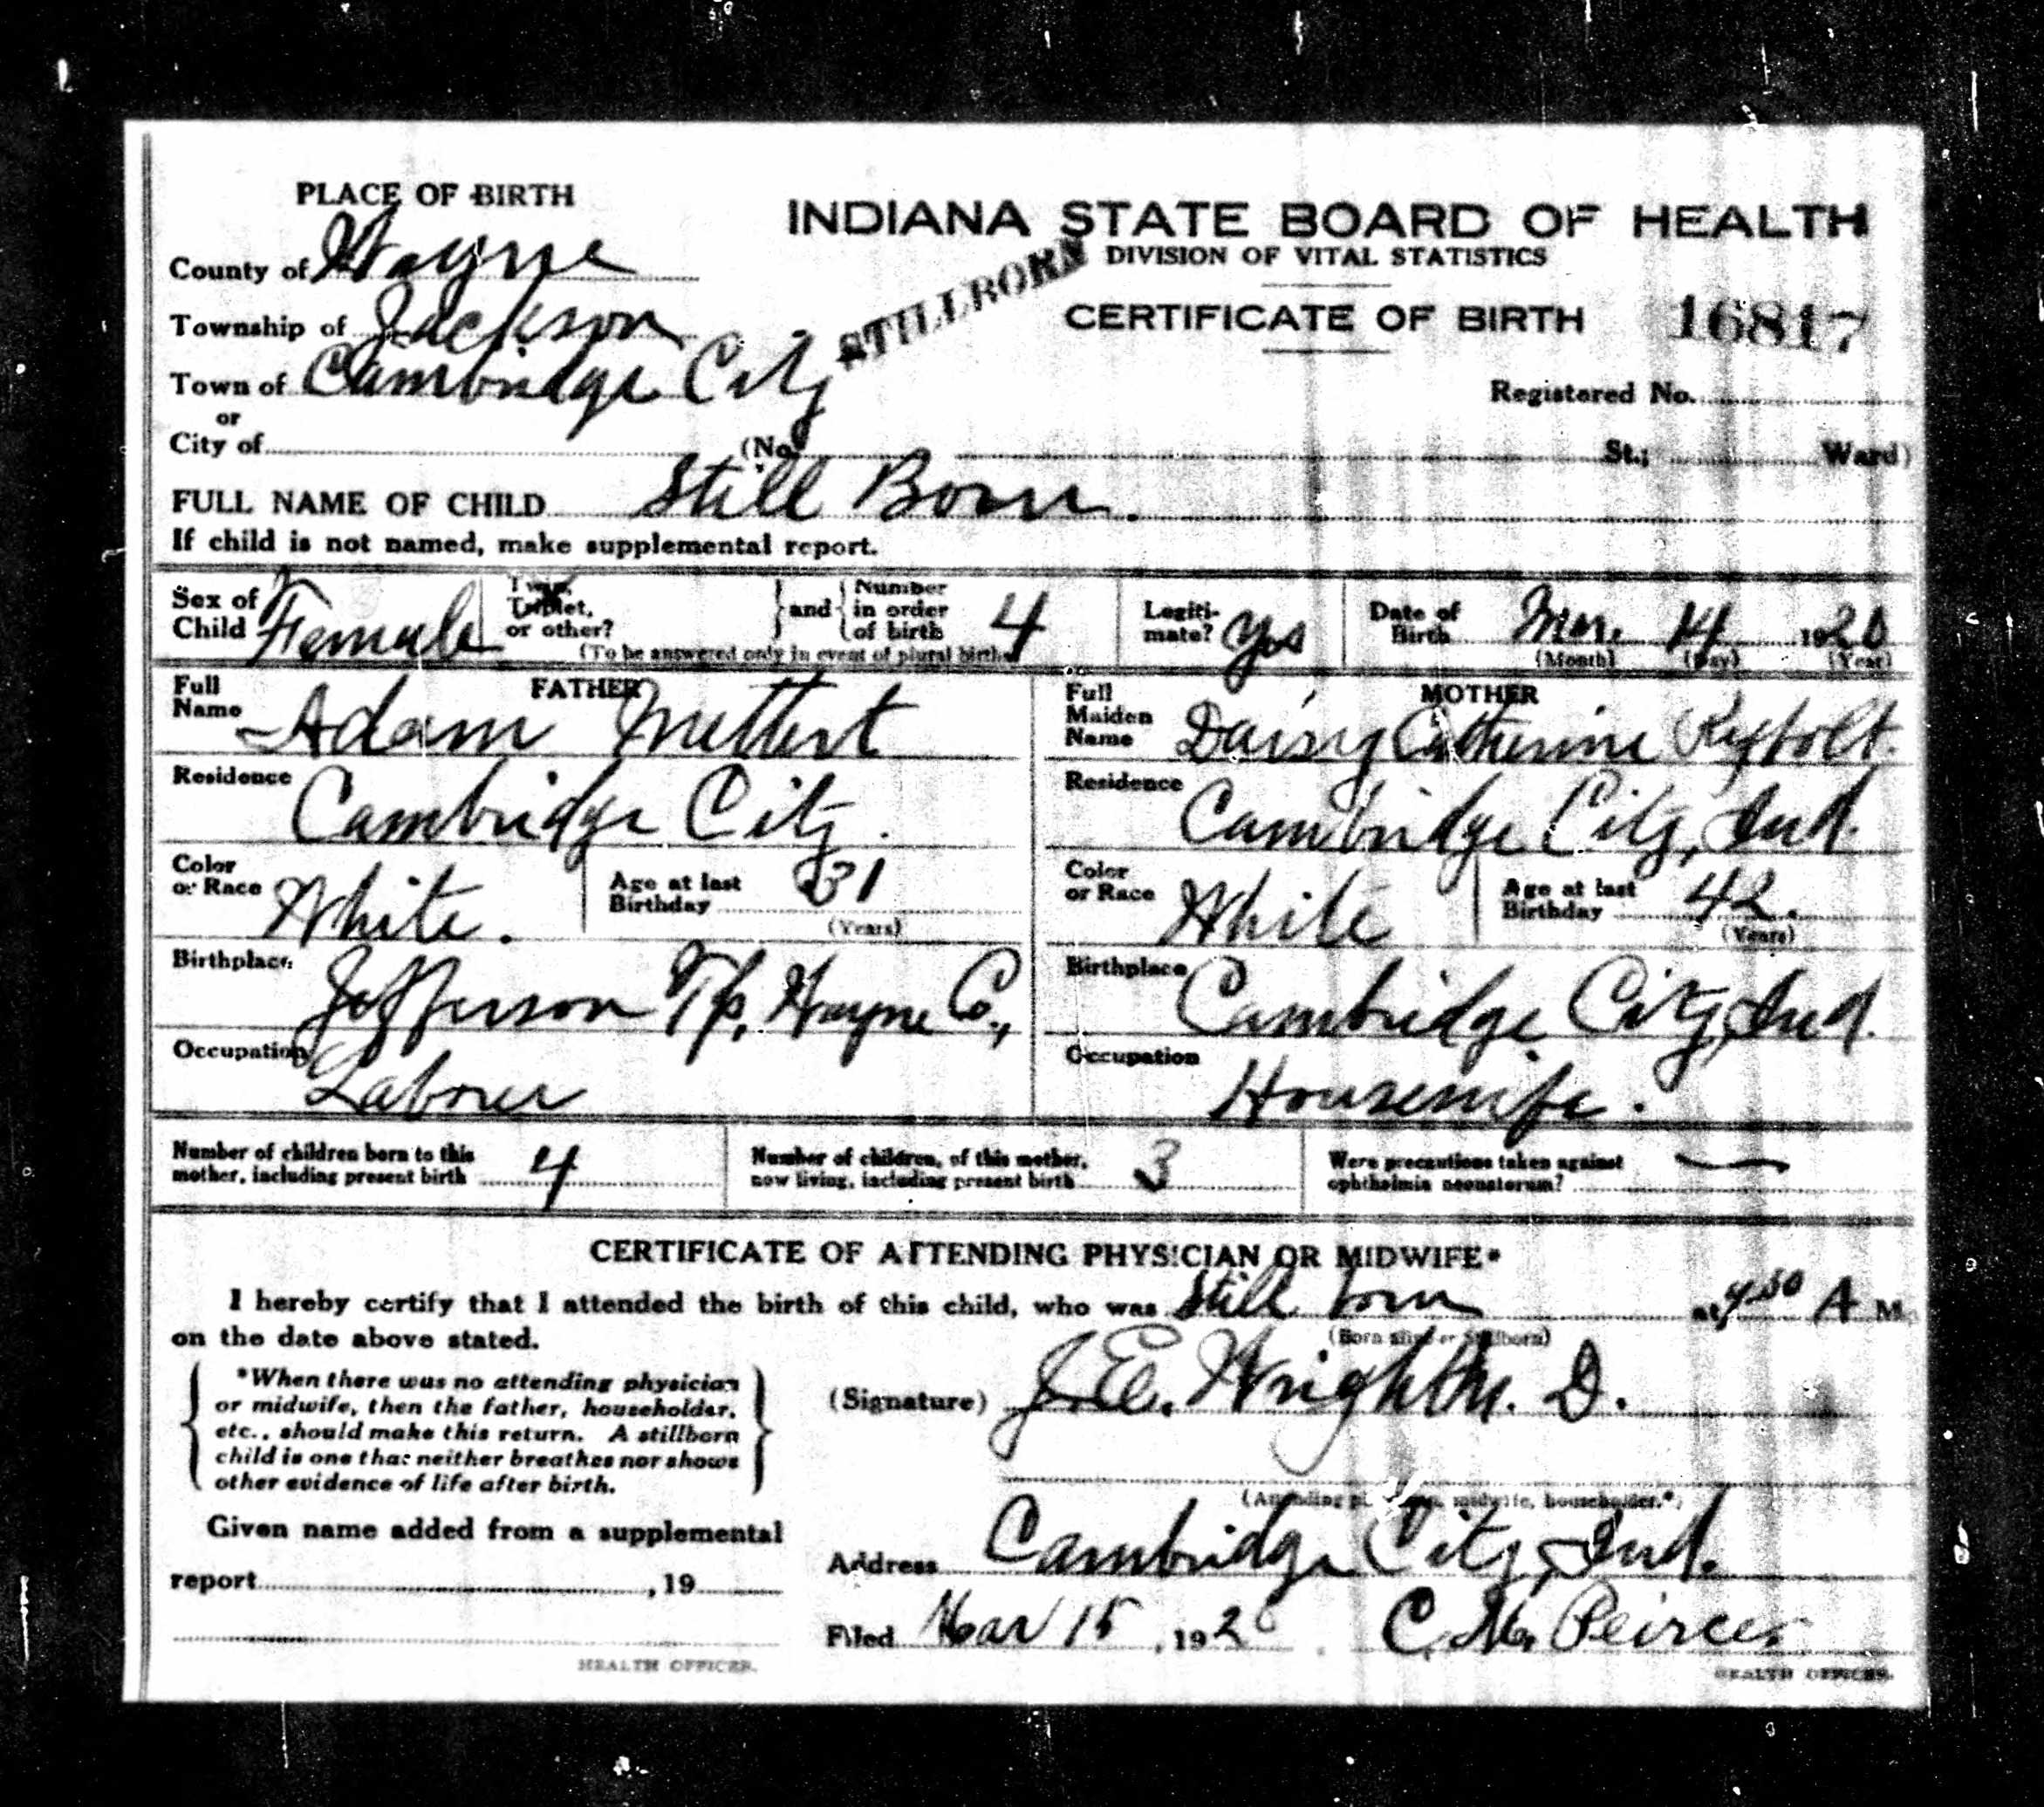 PLACE OF BIRTH
INDIANA STATE BOARD OF HEALTH
DIVISION OF VITAL STATISTICS
STILLBORN
CERTIFICATE OF BIRTH 16817
County of Wayne
Township of Jackson
Town of Cambridge City
or
Registered No.
City of (No. St.; Ward)
FULL NAME OF CHILD Still Born.
If child is not named, make supplemental report.
Sex of Child Female
Twin, Triplet, or other? and Number in order of birth 4
(To be answered only in event of plural births)
Legiti-mate? Yes
Date of Birth Mar. 14 1920
(Month) (Day) (Year)
FATHER
Full Name Adam Mettert
Residence Cambridge City.
Color or Race White.
Age at last Birthday 31
(Years)
Birthplace Jefferson Tp, Wayne Co.,
Occupation Laborer
MOTHER
Full Maiden Name Daisy Catherine
Residence Cambridge City, Ind.
Color or Race White
Age at last Birthday 42.
(Years)
Birthplace Cambridge City, Ind.
Occupation Housewife.
Number of children born to this mother, including present birth 4
Number of children, of this mother, now living, including present birth 3
Were precautions taken against ophthalmia neonatorum? —
CERTIFICATE OF ATTENDING PHYSICIAN OR MIDWIFE*
I hereby certify that I attended the birth of this child, who was Still born at A M.
(Born alive or Stillborn)
on the date above stated.
*When there was no attending physician
or midwife, then the father, householder,
etc., should make this return. A stillborn
child is one that neither breathes nor shows
other evidence of life after birth.
(Signature) J.E. Wright M. D.
(Attending physician, midwife, householder.*)
Given name added from a supplemental
report , 19
HEALTH OFFICER.
Address Cambridge City, Ind.
Filed Mar 15, 1920 C. M. Peirce.
HEALTH OFFICER.